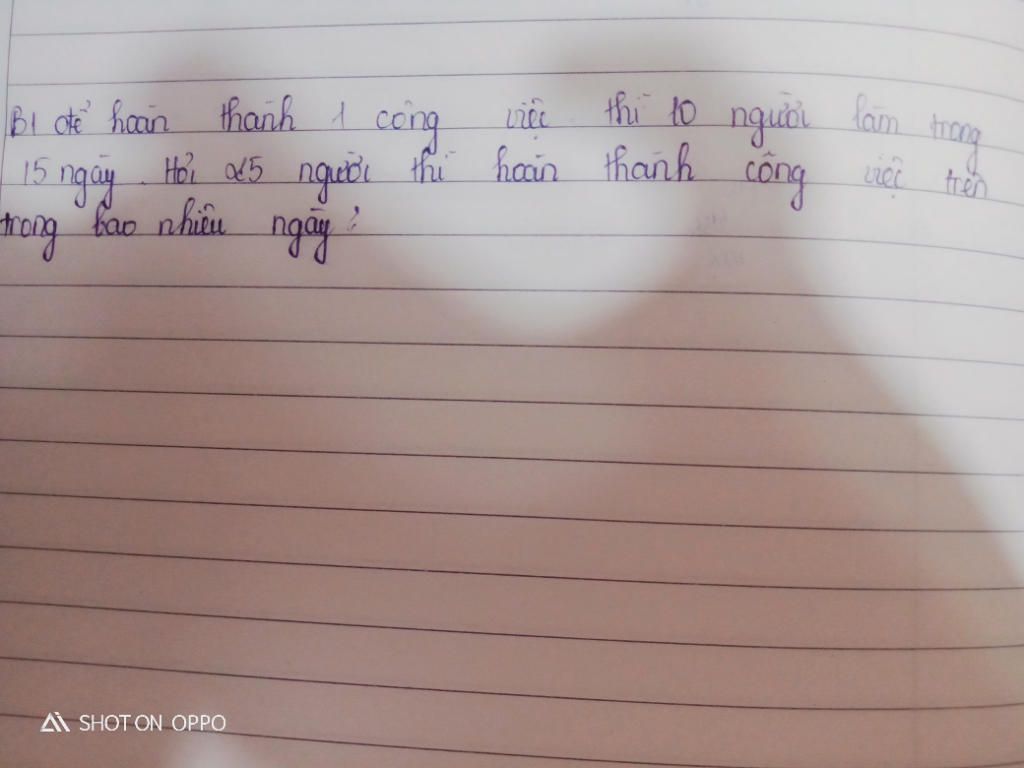 B1 để hoàn thành 1 công việc thì 10 người làm trong
15 ngày. Hỏi 25 người thì hoàn thành công việc trên
trong bao nhiêu ngày?
SHOT ON OPPO